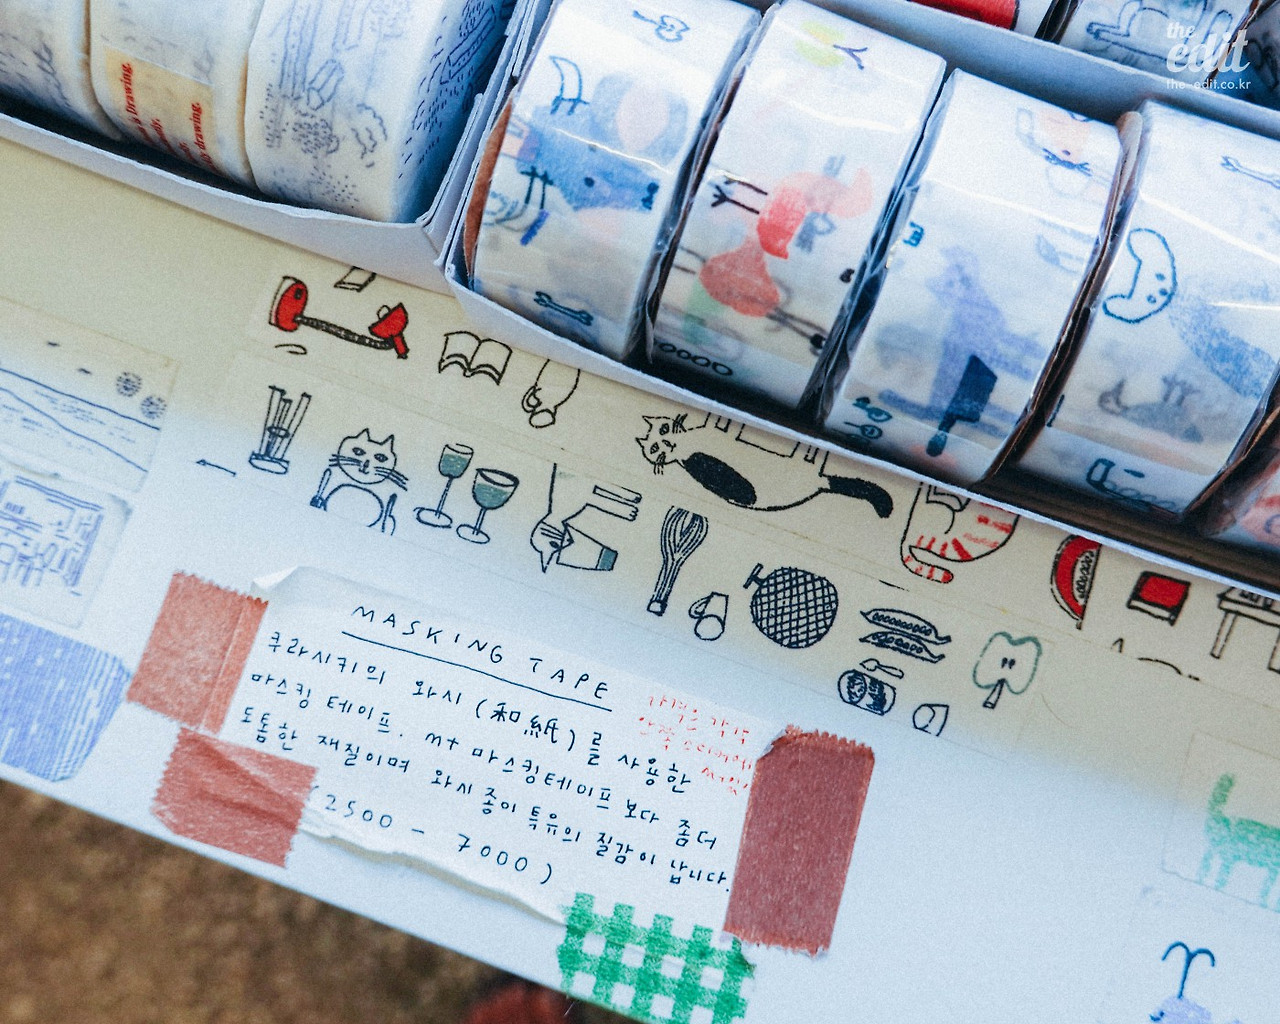 the
edit
the-edit.co.kr
Drawing.
drawing.
MASKING TAPE
쿠라시키의 와시(和紙)를 사용한
마스킹 테이프. mt 마스킹테이프 보다 좀더
도톰한 재질이며 와시 종이 특유의 질감이 납니다.
(2500 - 7000)
가격은 각각